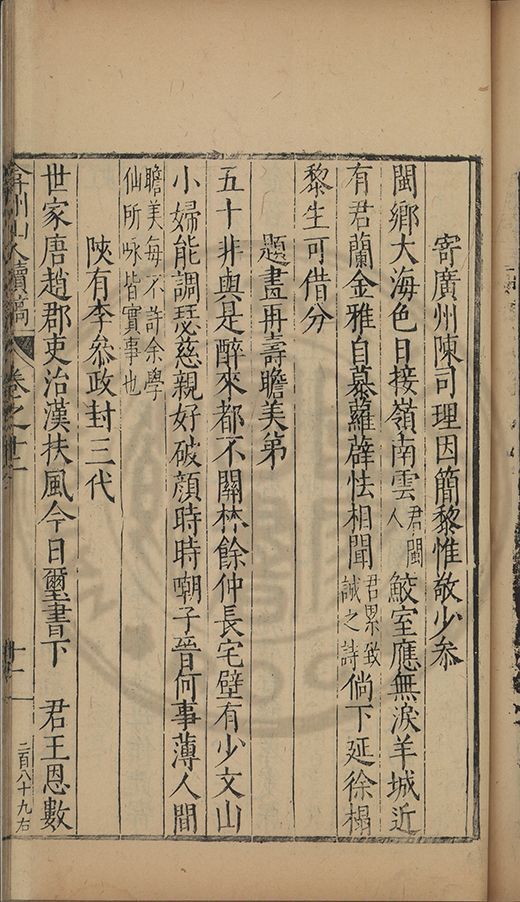 寄廣州陳司理因簡黎惟敬少叅
閩鄉大海色日接嶺南雲君閩人鮫室應無淚羊城近
有君蘭金雅自慕蘿薜怯相聞君累致誠之詩倘下延徐榻
黎生可借分
題畫再壽瞻美第
五十非與是醉來都不關林餘仲長宅壁有少文山
小婦能調瑟慈親好破顏時時嘲子晉何事薄人間
瞻美每不許余學
仙所咏皆實事也
陝有李叅政封三代
世家唐趙郡吏治漢扶風今日璽書下 君王恩數
弇州山人續稿 卷之
二百八十九右